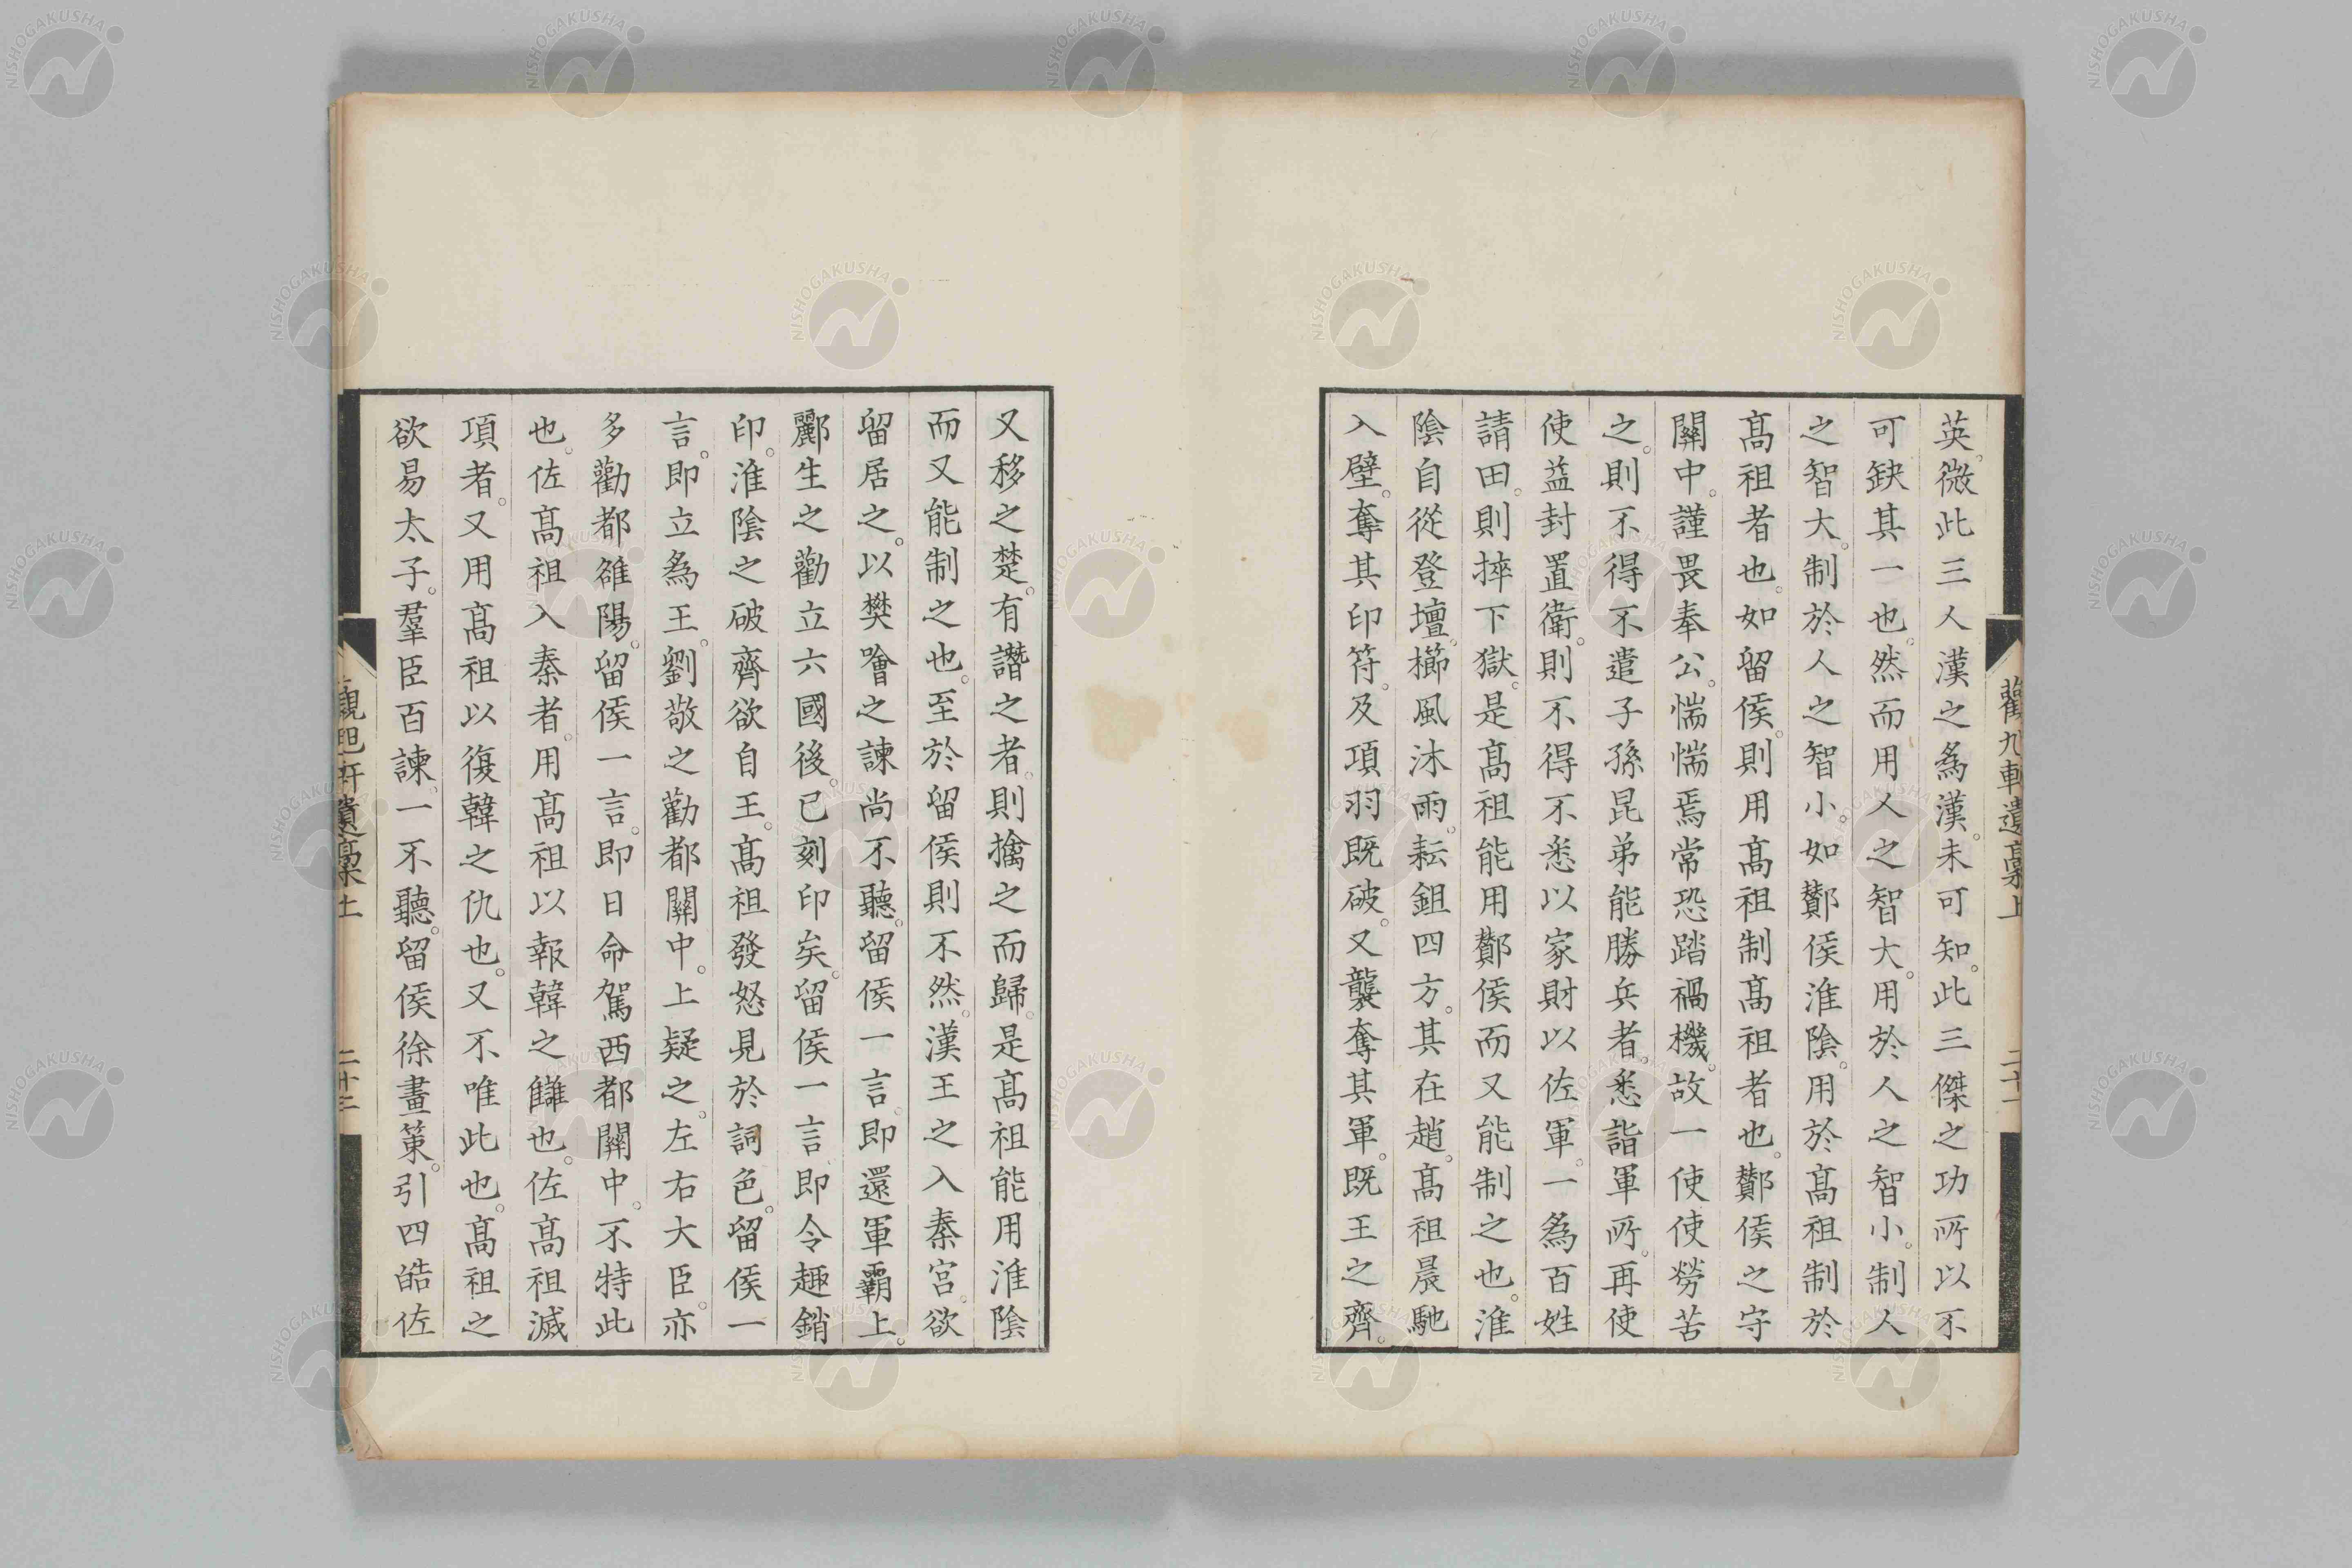 英。微此三人漢之為漢。未可知。此三傑之功所以不
可缺其一也。然而用人之智大。用於人之智小。制人
之智大。制於人之智小。如酇侯淮陰。用於髙祖制於
髙祖者也。如留侯。則用髙祖制髙祖者也。酇侯之守
關中。謹畏奉公。惴惴焉常恐踏禍機。故一使使勞苦
之。則不得不遣子孫昆弟能勝兵者。悉詣軍所。再使
使益封置衛。則不得不悉以家財以佐軍。一為百姓
請田。則捽下獄。是髙祖能用酇侯而又能制之也。淮
陰自從登壇。櫛風沐雨。耘鉏四方。其在趙。髙祖晨馳
入壁。奪其印符。及項羽既破。又襲奪其軍。既王之齊。
又移之楚。有譖之者。則擒之而歸。是髙祖能用淮陰
而又能制之也。至於留侯則不然。漢王之入秦宮。欲
留居之。以樊噲之諫尚不聽。留侯一言。即還軍霸上。
酈生之勸立六國後。已刻印矣。留侯一言即令趣銷
印。淮陰之破齊欲自王。髙祖發怒見於詞色。留侯一
言。即立為王。劉敬之勸都關中。上疑之。左右大臣。亦
多勸都雒陽。留侯一言。即日命駕西都關中。不特此
也。佐髙祖入秦者。用髙祖以報韓之讎也。佐髙祖滅
項者。又用髙祖以復韓之仇也。又不唯此也。髙祖之
欲易太子。羣臣百諫。一不聽。留侯徐畫策。引四皓佐
遺稾上